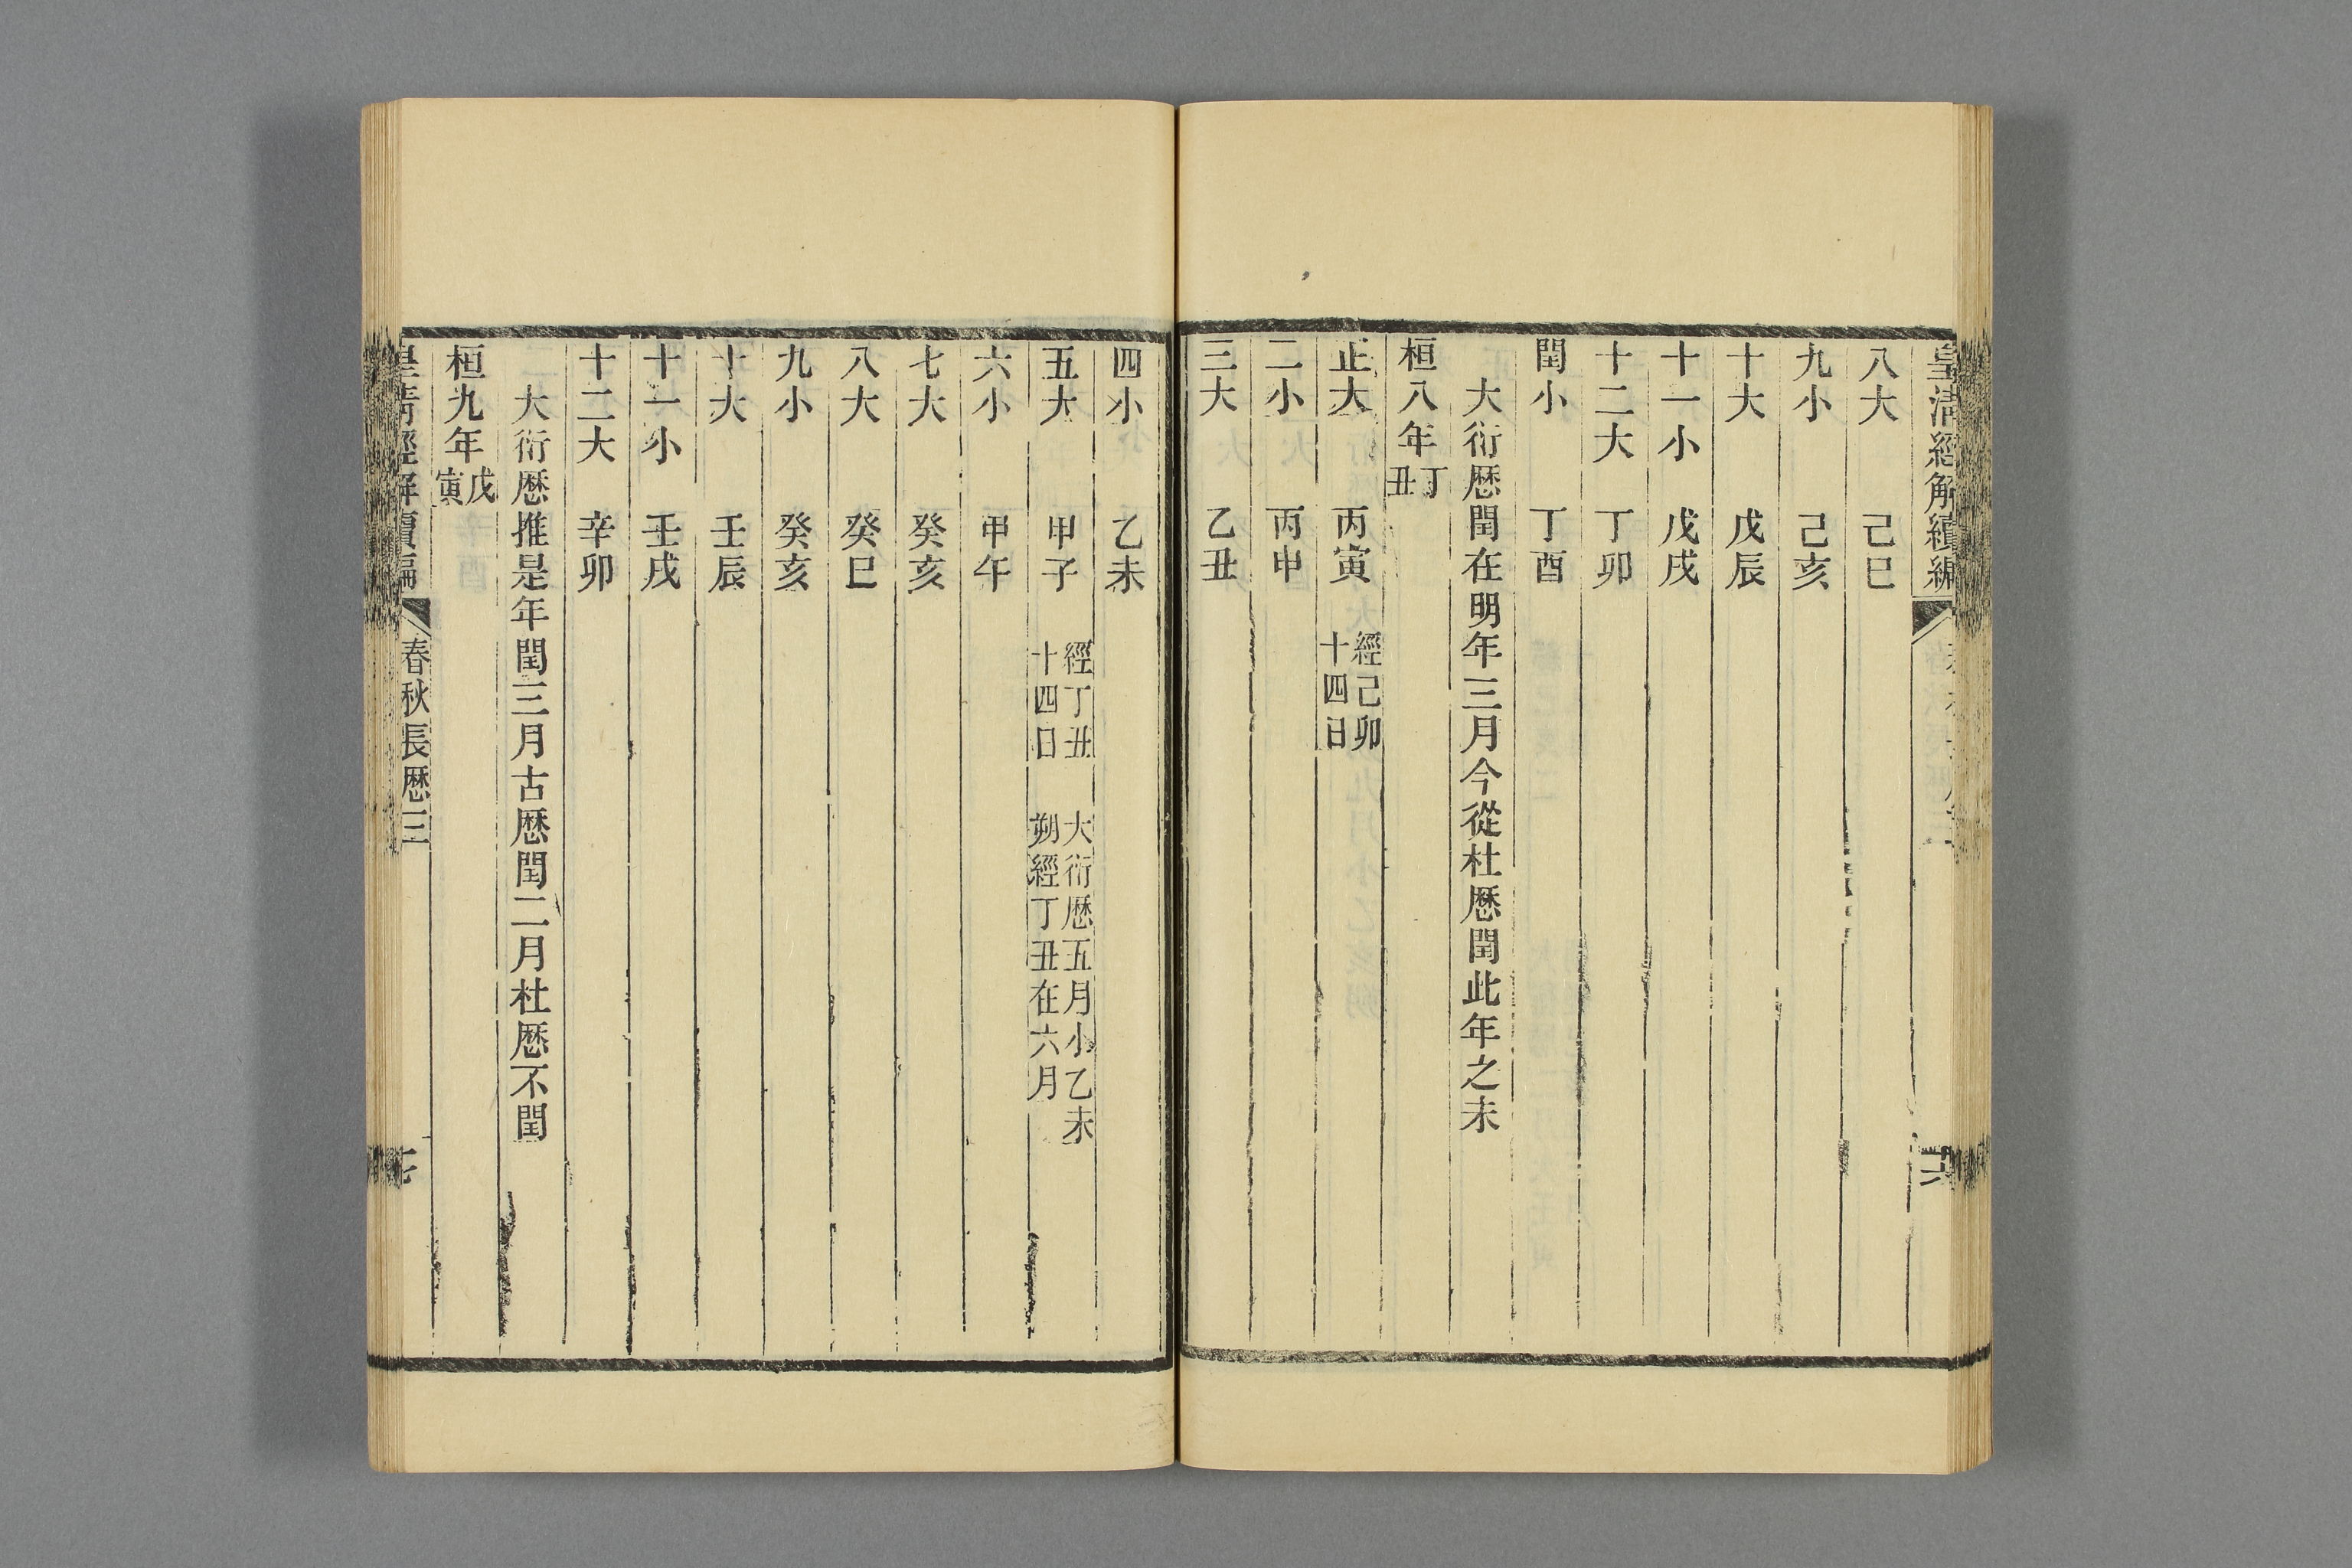 皇清經解續編
八大 己巳
九小 己亥
十大 戊辰
十一小 戊戌
十二大 丁卯
閏小 丁酉
大衍厯閏在明年三月今從杜厯閏此年之未
桓八年丁丑
正大 丙寅 經己卯十四日
二小 丙申
三大 乙丑
四小 乙未
五大 甲子 經丁丑十四日 大衍厯五月小乙未朔經丁丑在六月
六小 甲午
七大 癸亥
八大 癸巳
九小 癸亥
十大 壬辰
十一小 壬戌
十二大 辛卯
大衍厯推是年閏三月古厯閏二月杜厯不閏
桓九年戊寅
皇清經解續編 春秋長厯三